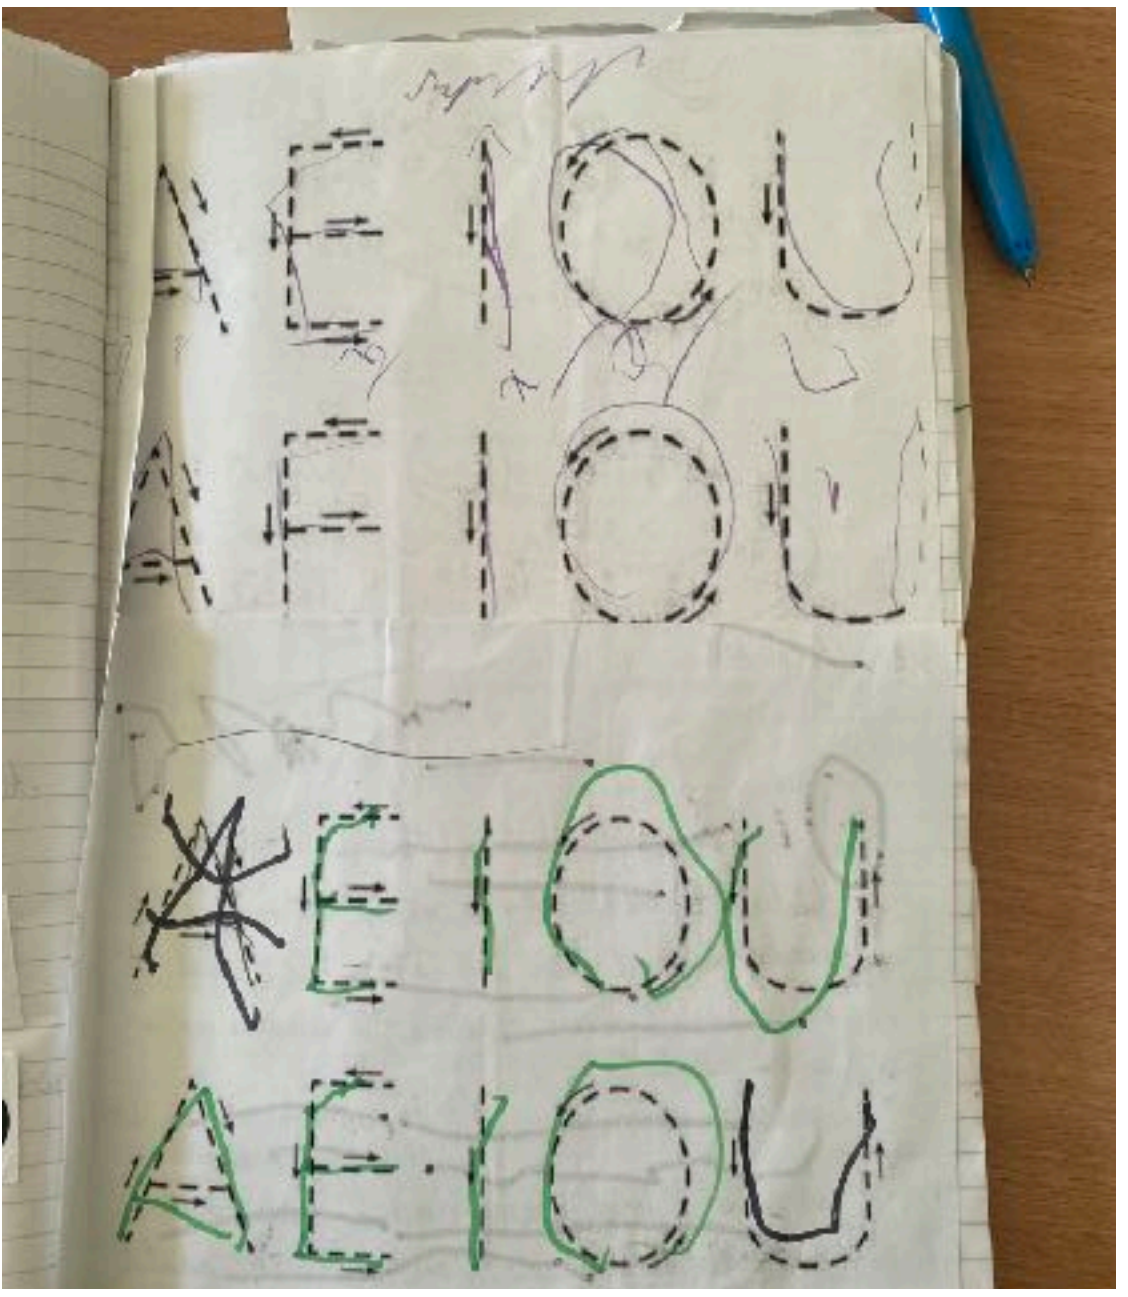 A E I O U
A E I O U
A E I O U
A E I O U